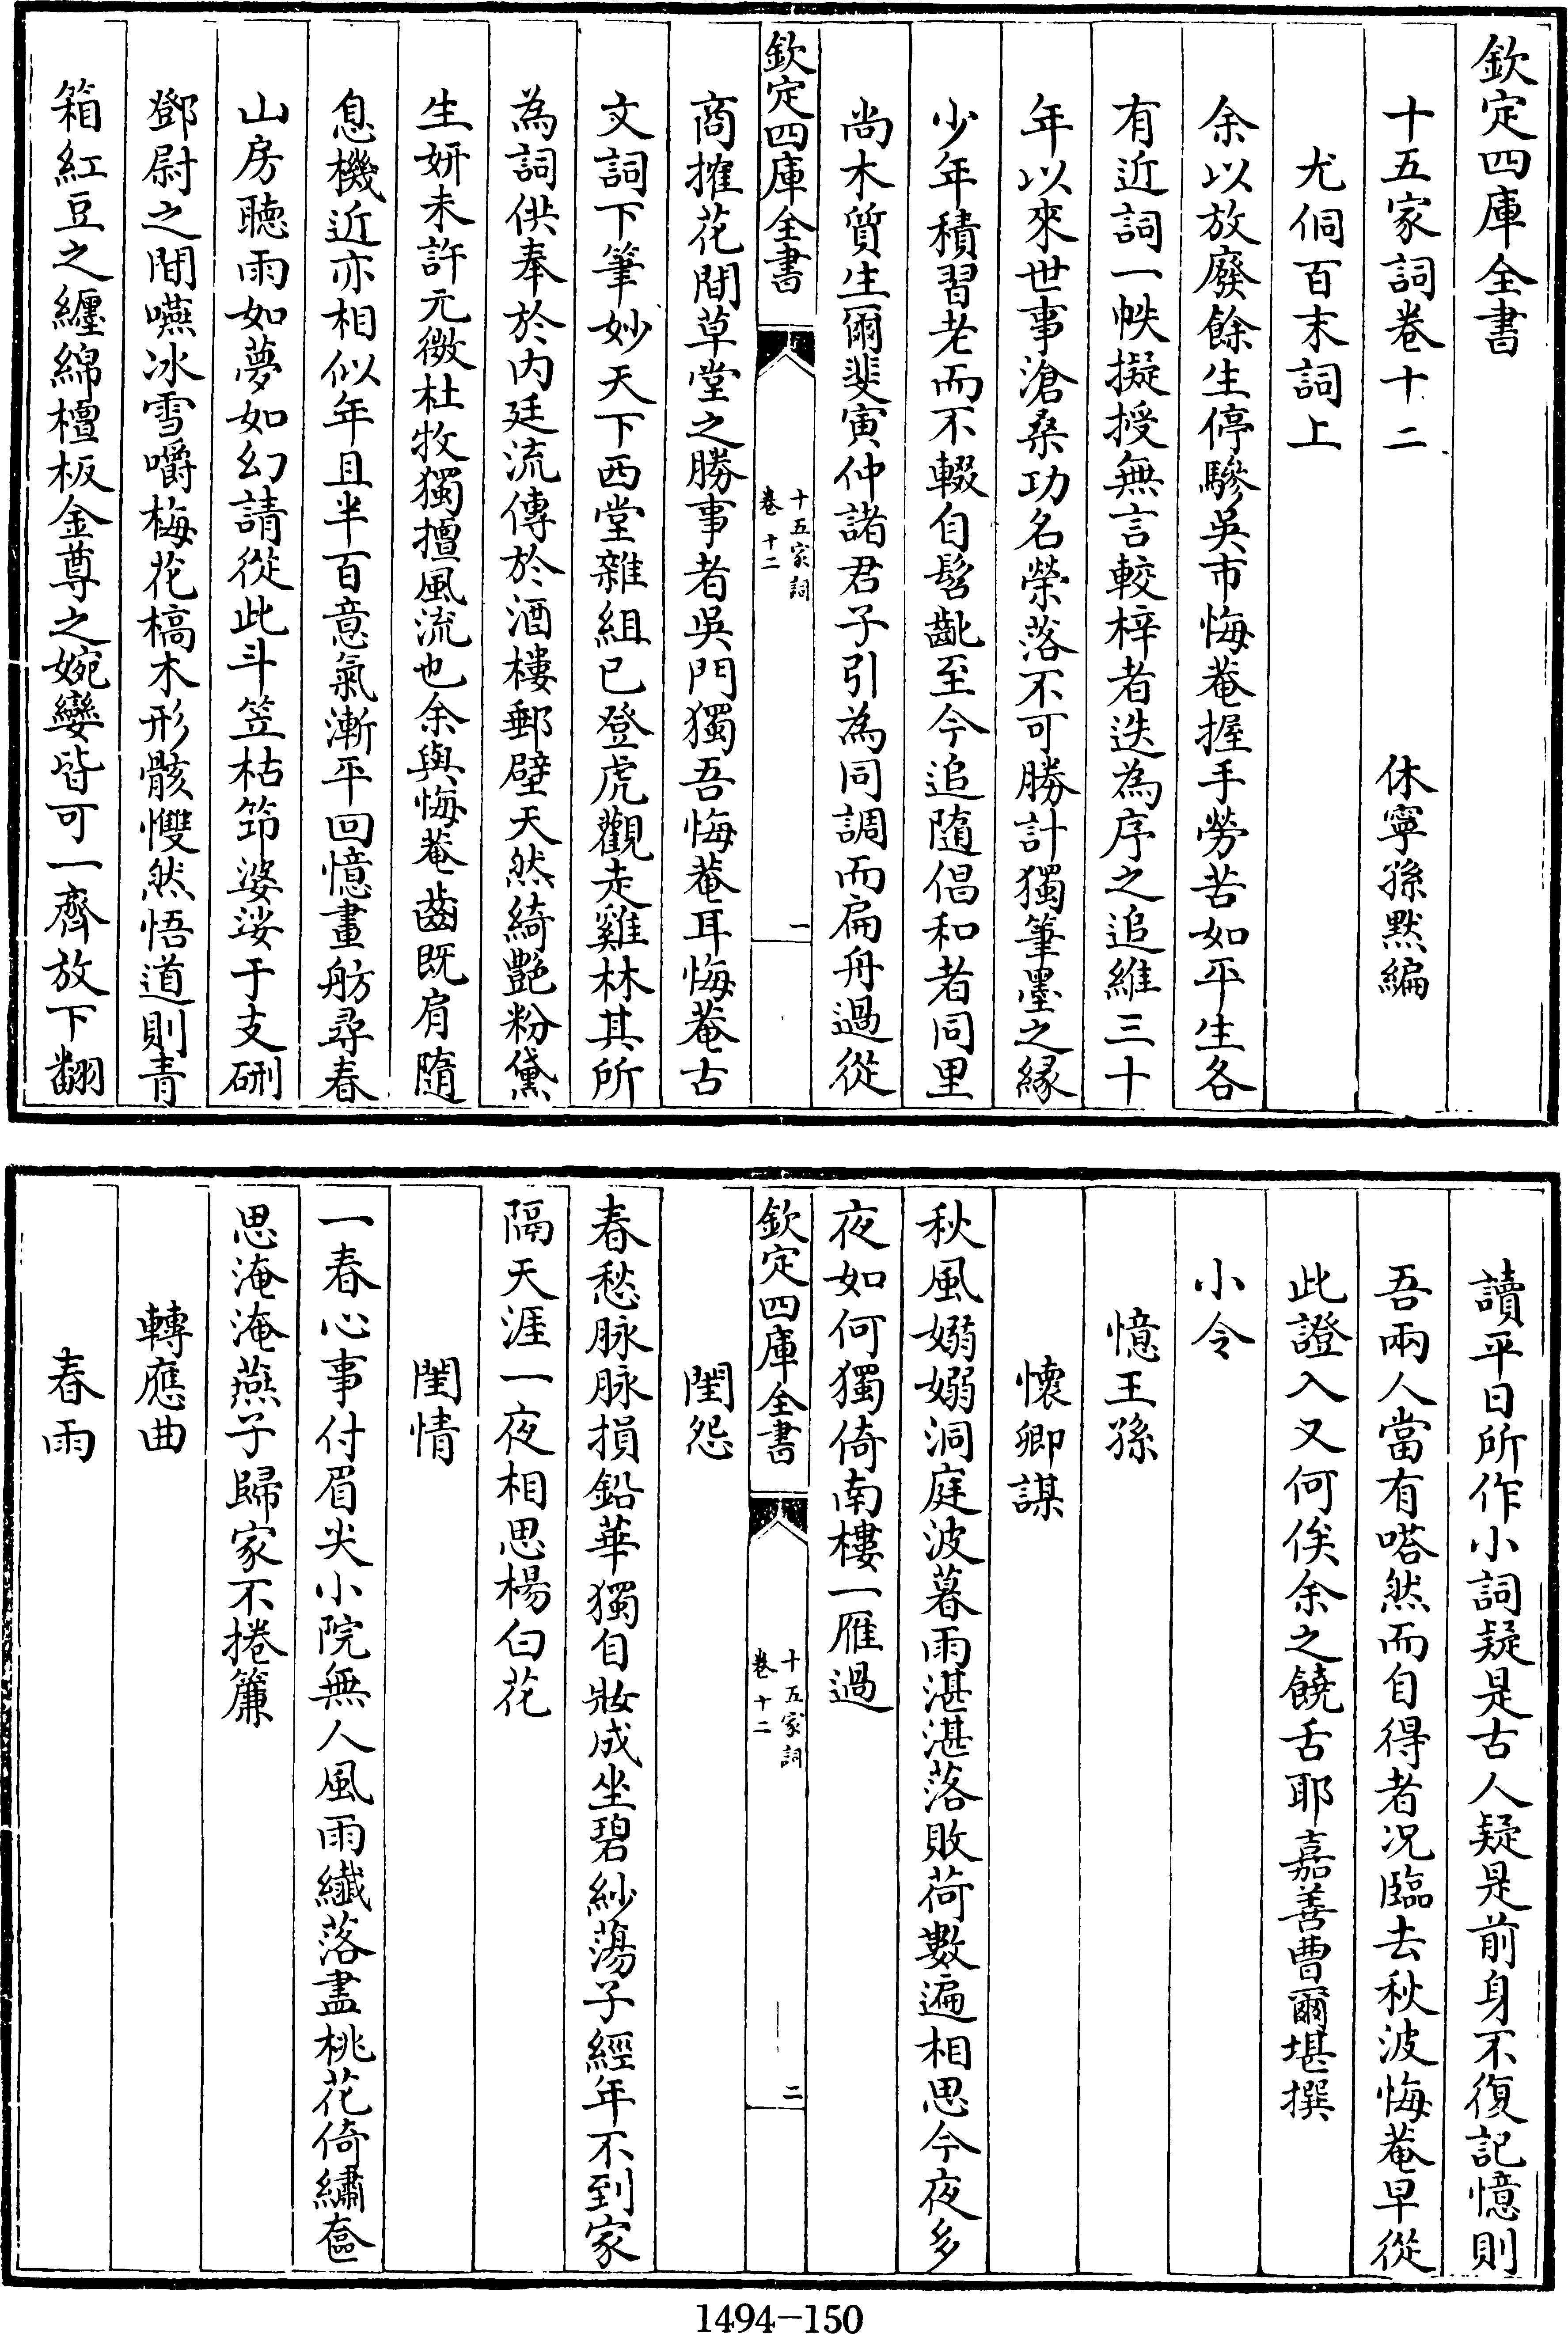 欽定四庫全書
十五家詞卷十二　休寧孫黙編
尤侗百末詞上
余以放廢餘生停驂吳市悔菴握手勞苦如平生各
有近詞一帙擬授無言較梓者迭為序之追維三十
年以來世事滄桑功名榮落不可勝計獨筆墨之緣
少年積習老而不輟自髫齔至今追隨倡和者同里
尚木質生爾斐寅仲諸君子引為同調而扁舟過從
欽定四庫全書
十五家詞
卷十二
一
商搉花間草堂之勝事者吳門獨吾悔菴耳悔菴古
文詞下筆妙天下西堂雜組已登虎觀走雞林其所
為詞供奉於内廷流傳於酒樓郵壁天然綺艷粉黛
生妍未許元微杜牧獨擅風流也余與悔菴齒既肩隨
息機近亦相似年且半百意氣漸平回憶畫舫尋春
山房聽雨如夢如幻請從此斗笠枯笻婆娑于支硎
鄧尉之間嚥冰雪嚼梅花槁木形骸㦬然悟道則青
箱紅豆之纏綿檀板金尊之婉孌皆可一齊放下翻
讀平日所作小詞疑是古人疑是前身不復記憶則
吾兩人當有嗒然而自得者况臨去秋波悔菴早從
此證入又何俟余之饒舌耶嘉善曹爾堪撰
小令
憶王孫
懷卿謀
秋風嫋嫋洞庭波暮雨湛湛落敗荷數遍相思今夜多
夜如何獨倚南樓一雁過
欽定四庫全書
十五家詞
卷十二
二
閨怨
春愁脉脉損鉛華獨自妝成坐碧紗蕩子經年不到家
隔天涯一夜相思楊白花
閨情
一春心事付眉尖小院無人風雨纖落盡桃花倚繡奩
思淹淹燕子歸家不捲簾
轉應曲
春雨
1494-150